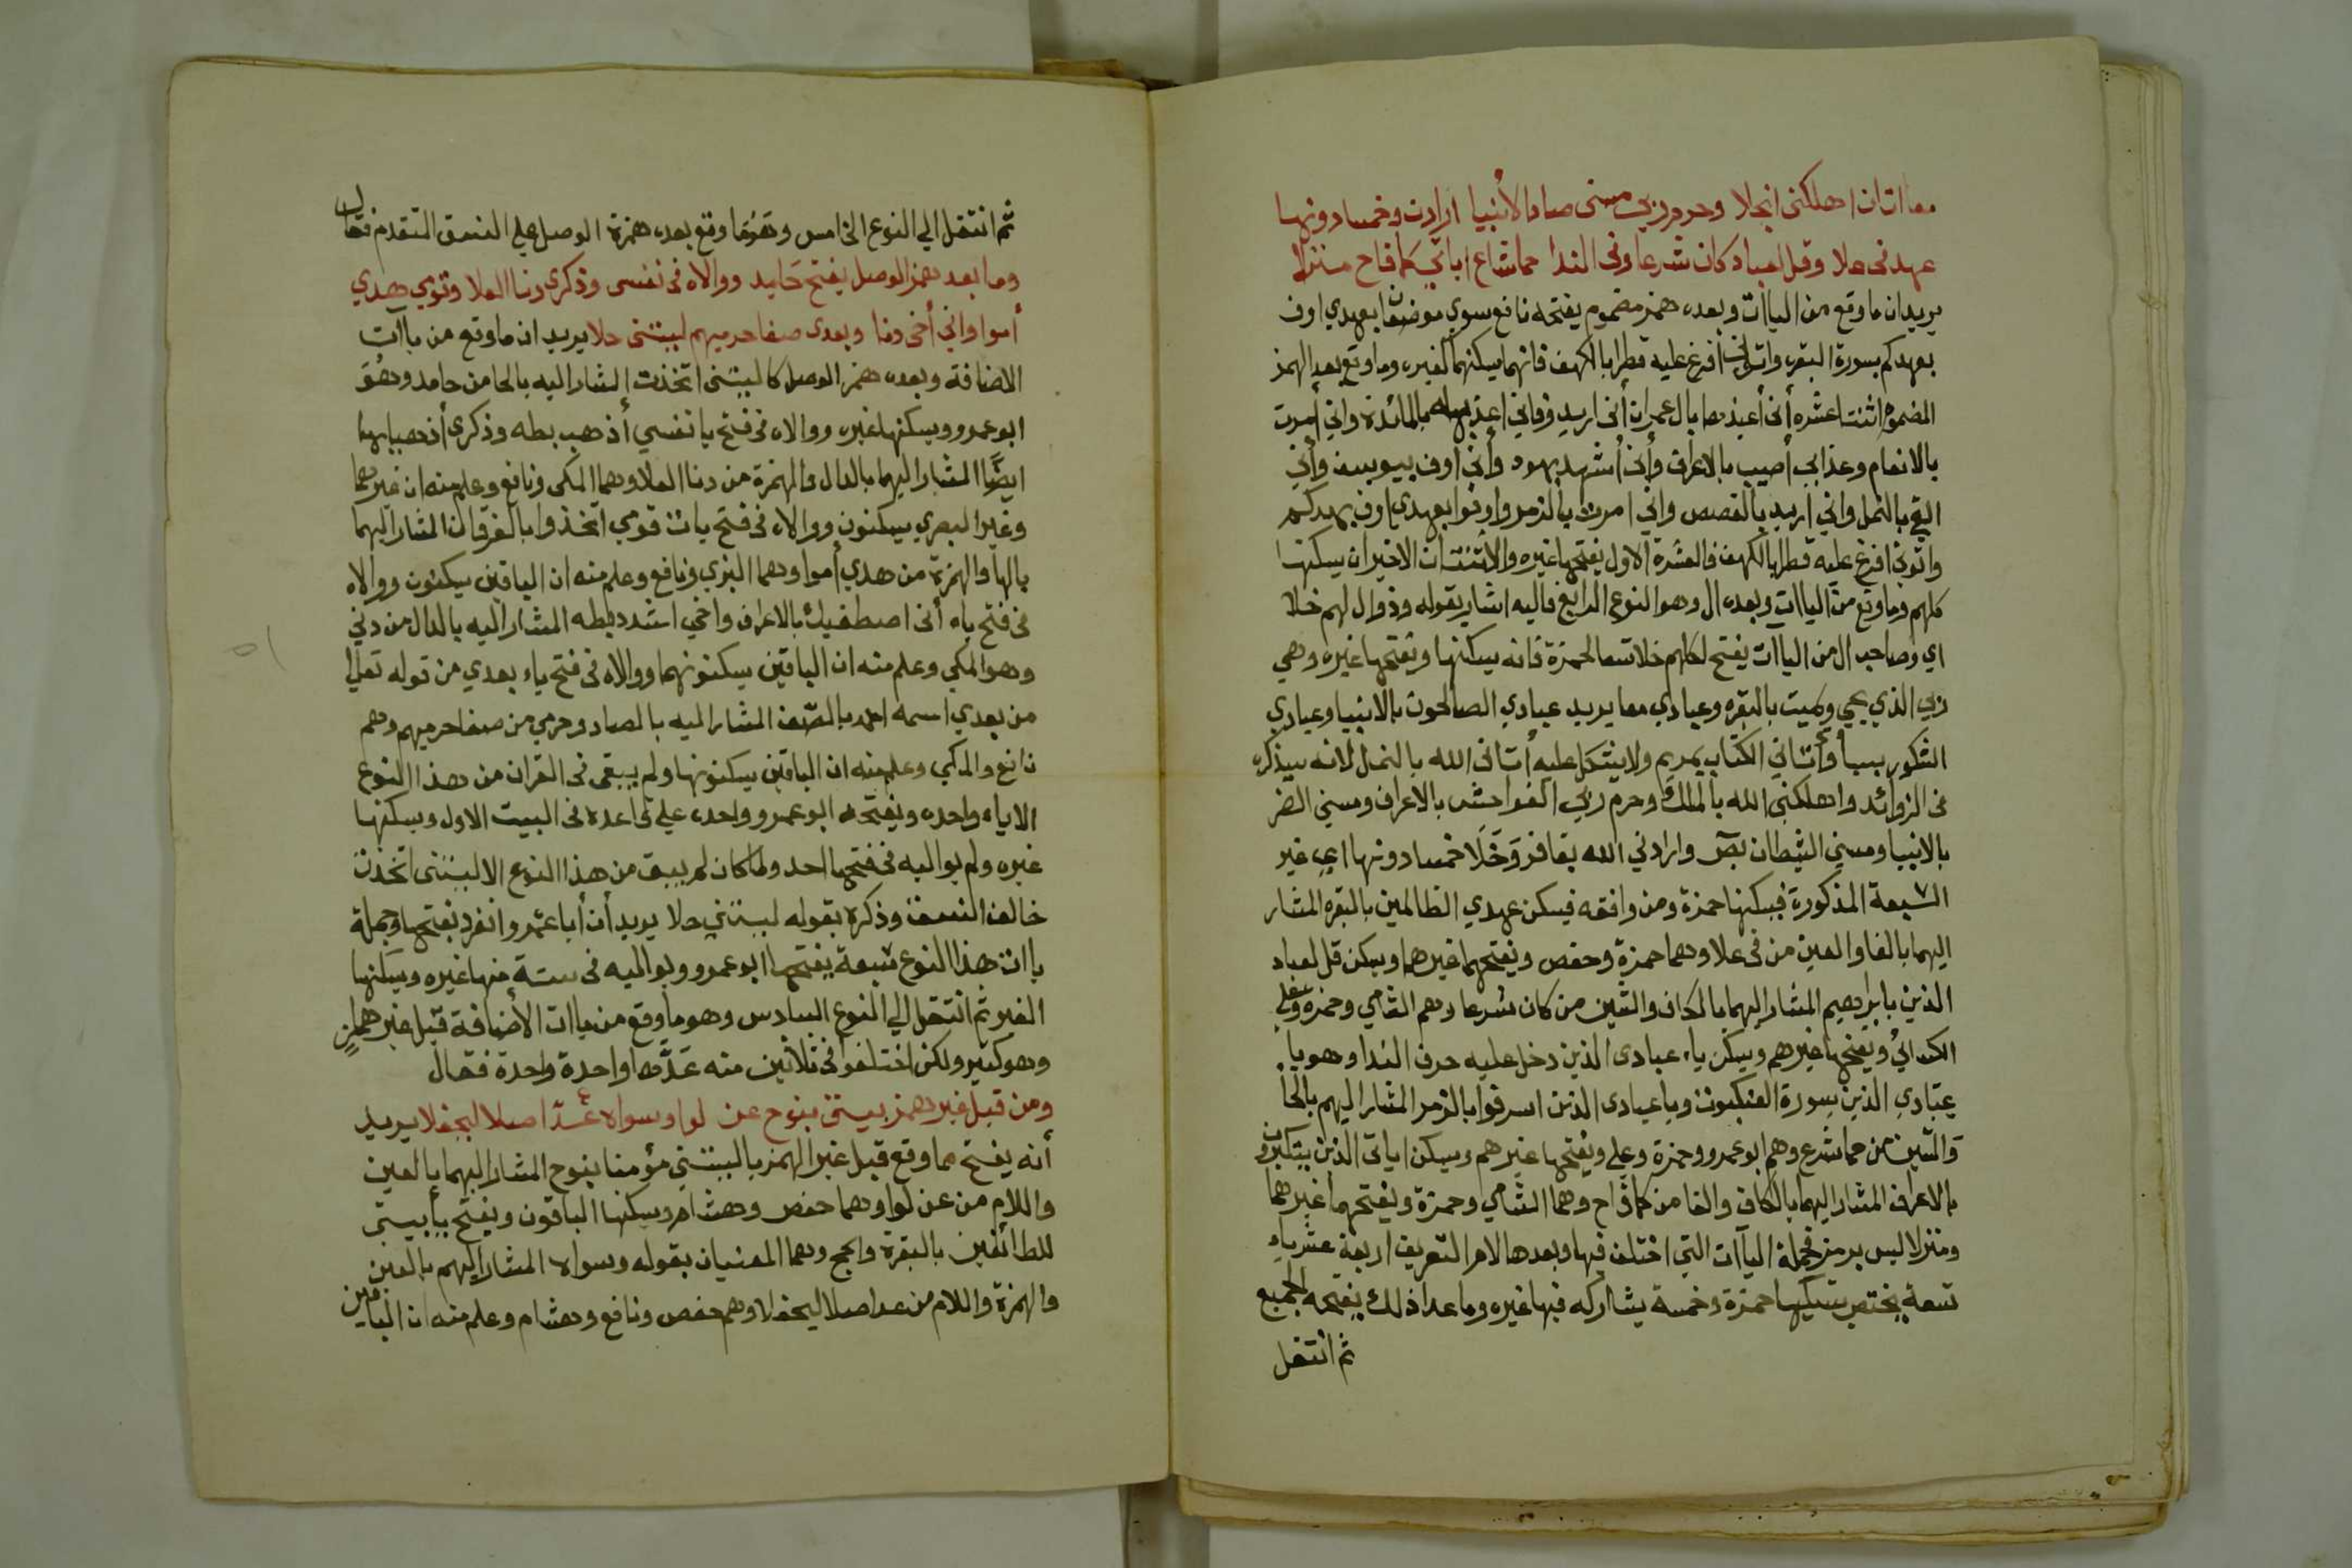 معا اتان اهلكنى انجلا وحرم ربي مسنى صاد الأنبيا ارادن وخمسا دونها
عهدنى علا وقل لعباد كان شرعا وفى الندا حما شاع اياتي كما فاح منزلا
يريد ان ما وقع من اليات وبعده همز مضموم يفتحه نافع سوي موضعين بعهدي اوف
بعهدكم بسورة البقره واتوني افرغ عليه قطرا بالكهف فانهما يسكنهما كغيره وما وقع بعد الهمز
المضموم اثنتا عشره أنى أعيذها بال عمران أنى اريد وفاني اعذبه بالمائدة واني أمرت
بالانعام وعذابي أصيب بالاعراف وأنى أشهد بهود وأنى اوف بيوسف وأني
القي بالنمل واني اريد بالقصص واني امرت بالزمر واوفوا بعهدي اوف بعهدكم
واتوني افرغ عليه قطرا بالكهف فالعشرة الاول يفتحها غيره والأثنتان الاخيران يسكنها
كلهم وما وقع من اليات وبعده ال وهو النوع الرابع فاليه اشار بقوله وذو ال لهم خلا
اي وصاحب ال من اليات يفتح لكلهم خلا تسعا لحمزة فانه يسكنها ويفتحها غيره وهي
ربي الذي يحي ويميت بالبقره وعبادي معا يريد عبادي الصالحون بالانبيا وعبادي
الشكور بسبأ وأتاني الكتاب بمريم ولا يشكل عليه أتانى الله بالنمل لانه سيذكره
فى الزوائد واهلكنى الله بالملك وحرم ربي الفواحش بالاعراف ومسني الضر
بالانبيا ومسني الشيطان بص وارادني الله بقافر وَخَلَا خمسا دونها اي غير
التسعة المذكورة فيسكنها حمزة ومن وافقه فيسكن عهدي الظالمين بالبقره المشار
اليهما بالفا والعين من فى علا وهما حمزة وحفص ويفتحهما غيرهما ويسكن قل لعباد
الذين بابراهيم المشار اليهما بالكاف والشين من كان شرعا وهم الشامي وحمزة وعلي
الكسائي ويفتحها غيرهم ويسكن ياء عبادى الذين دخل عليه حرف الندا وهو يا
عبادي الذين بسورة العنكبوت ويا عبادى الذين اسرفوا بالزمر المشار اليهم بالحا
والشين من حما شرع وهم ابو عمرو وحمزة وعلي ويفتحها غيرهم ويسكن اياتى الذين يتكبرون
بالاعراف المشار اليهما بالكاف والفا من كما فاح وهما الشامي وحمزة ويفتحهما غيرهما
ومنزلا ليس برمز فجملة اليآت التي اختلف فيها وبعدها لام التعريف اربعة عشر ياء
تسعة يختص بتسكينها حمزة وخمسة يشاركه فيها غيره وما عدا ذلك يفتحه الجميع
ثم انتقل
ثم انتقل الي النوع الخامس وهو ما وقع بعده همزة الوصل علي النسق المتقدم فقال
وما بعد همز الوصل يفتح حامد ووالاه فى نفسى وذكرى دنا العلا وقومي هدي
أموا واني أخى دنا وبعدى صفا حرميهم ليتنى حلا يريد ان ما وقع من ياآت
الاضافة وبعده همز الوصل كاليتنى اتخذت المشار اليه بالحا من حامد وهو
ابو عمرو ويسكنها غيره ووالاه فى فتح يا نفسي أذهب بطه وذكرى أذهبا بها
ايضًا المشار اليهما بالدال والهمزة من دنا العلا وهما المكى ونافع وعلم منه ان غيرهما
وغير البصري يسكنون ووالاه فى فتح يات قومي اتخذوا بالفرقان المشار اليهما
بالها والهمزة من هدي أموا وهما البزي ونافع وعلم منه ان الباقين يسكنون ووالاه
فى فتح ياء أنى اصطفيتك بالاعراف واخي اشدد بطه المشار اليه بالدال من دني
وهو المكي وعلم منه ان الباقين يسكنونهما ووالاه فى فتح ياء بعدي من قوله تعالى
من بعدي اسمه احمد بالصّف المشار اليه بالصاد وحرمي من صفا حرميهم وهم
نافع والمكي وعلم منه ان الباقين يسكنونها ولم يبقى فى القران من هذا النوع
الا ياء واحده ويفتحه ابو عمرو وحده علي قاعدة فى البيت الاول ويسكنها
غيره ولم يواليه فى فتحها احد ولما كان لم يبق من هذا النوع الا ليتنى اتخذت
خالف النسق وذكره بقوله ليتني حلا يريد أن أبا عمرو انفرد بفتحها وجملة
ياات هذا النوع سبعة يفتحها ابو عمرو ويواليه فى ستة منها غيره ويسكنها
الغير ثم انتقل الي النوع السادس وهو ما وقع من ياات الأضافة قبل غير همز
وهو كثير ولكن اختلفوا فى ثلاثين منه عَدَّها واحدة واحدة فقال
ومن قبل غير همز بيتى بنوح عن لوا وسواه عُدّ اصلا ليحفلا يريد
أنه يفتح مما وقع قبل غير الهمز يا لبيتي مؤمنا بنوح المشار اليهما بالعين
واللام من عن لوا وهما حفص وهشام ويسكنها الباقون ويفتح يا بيتى
للطائفين بالبقرة والحج وهما المعنيان بقوله وسواه المشار اليهم بالعين
والهمزة واللام من عد اصلا ليحفلا وهم حفص ونافع وهشام وعلم منه ان الباقين